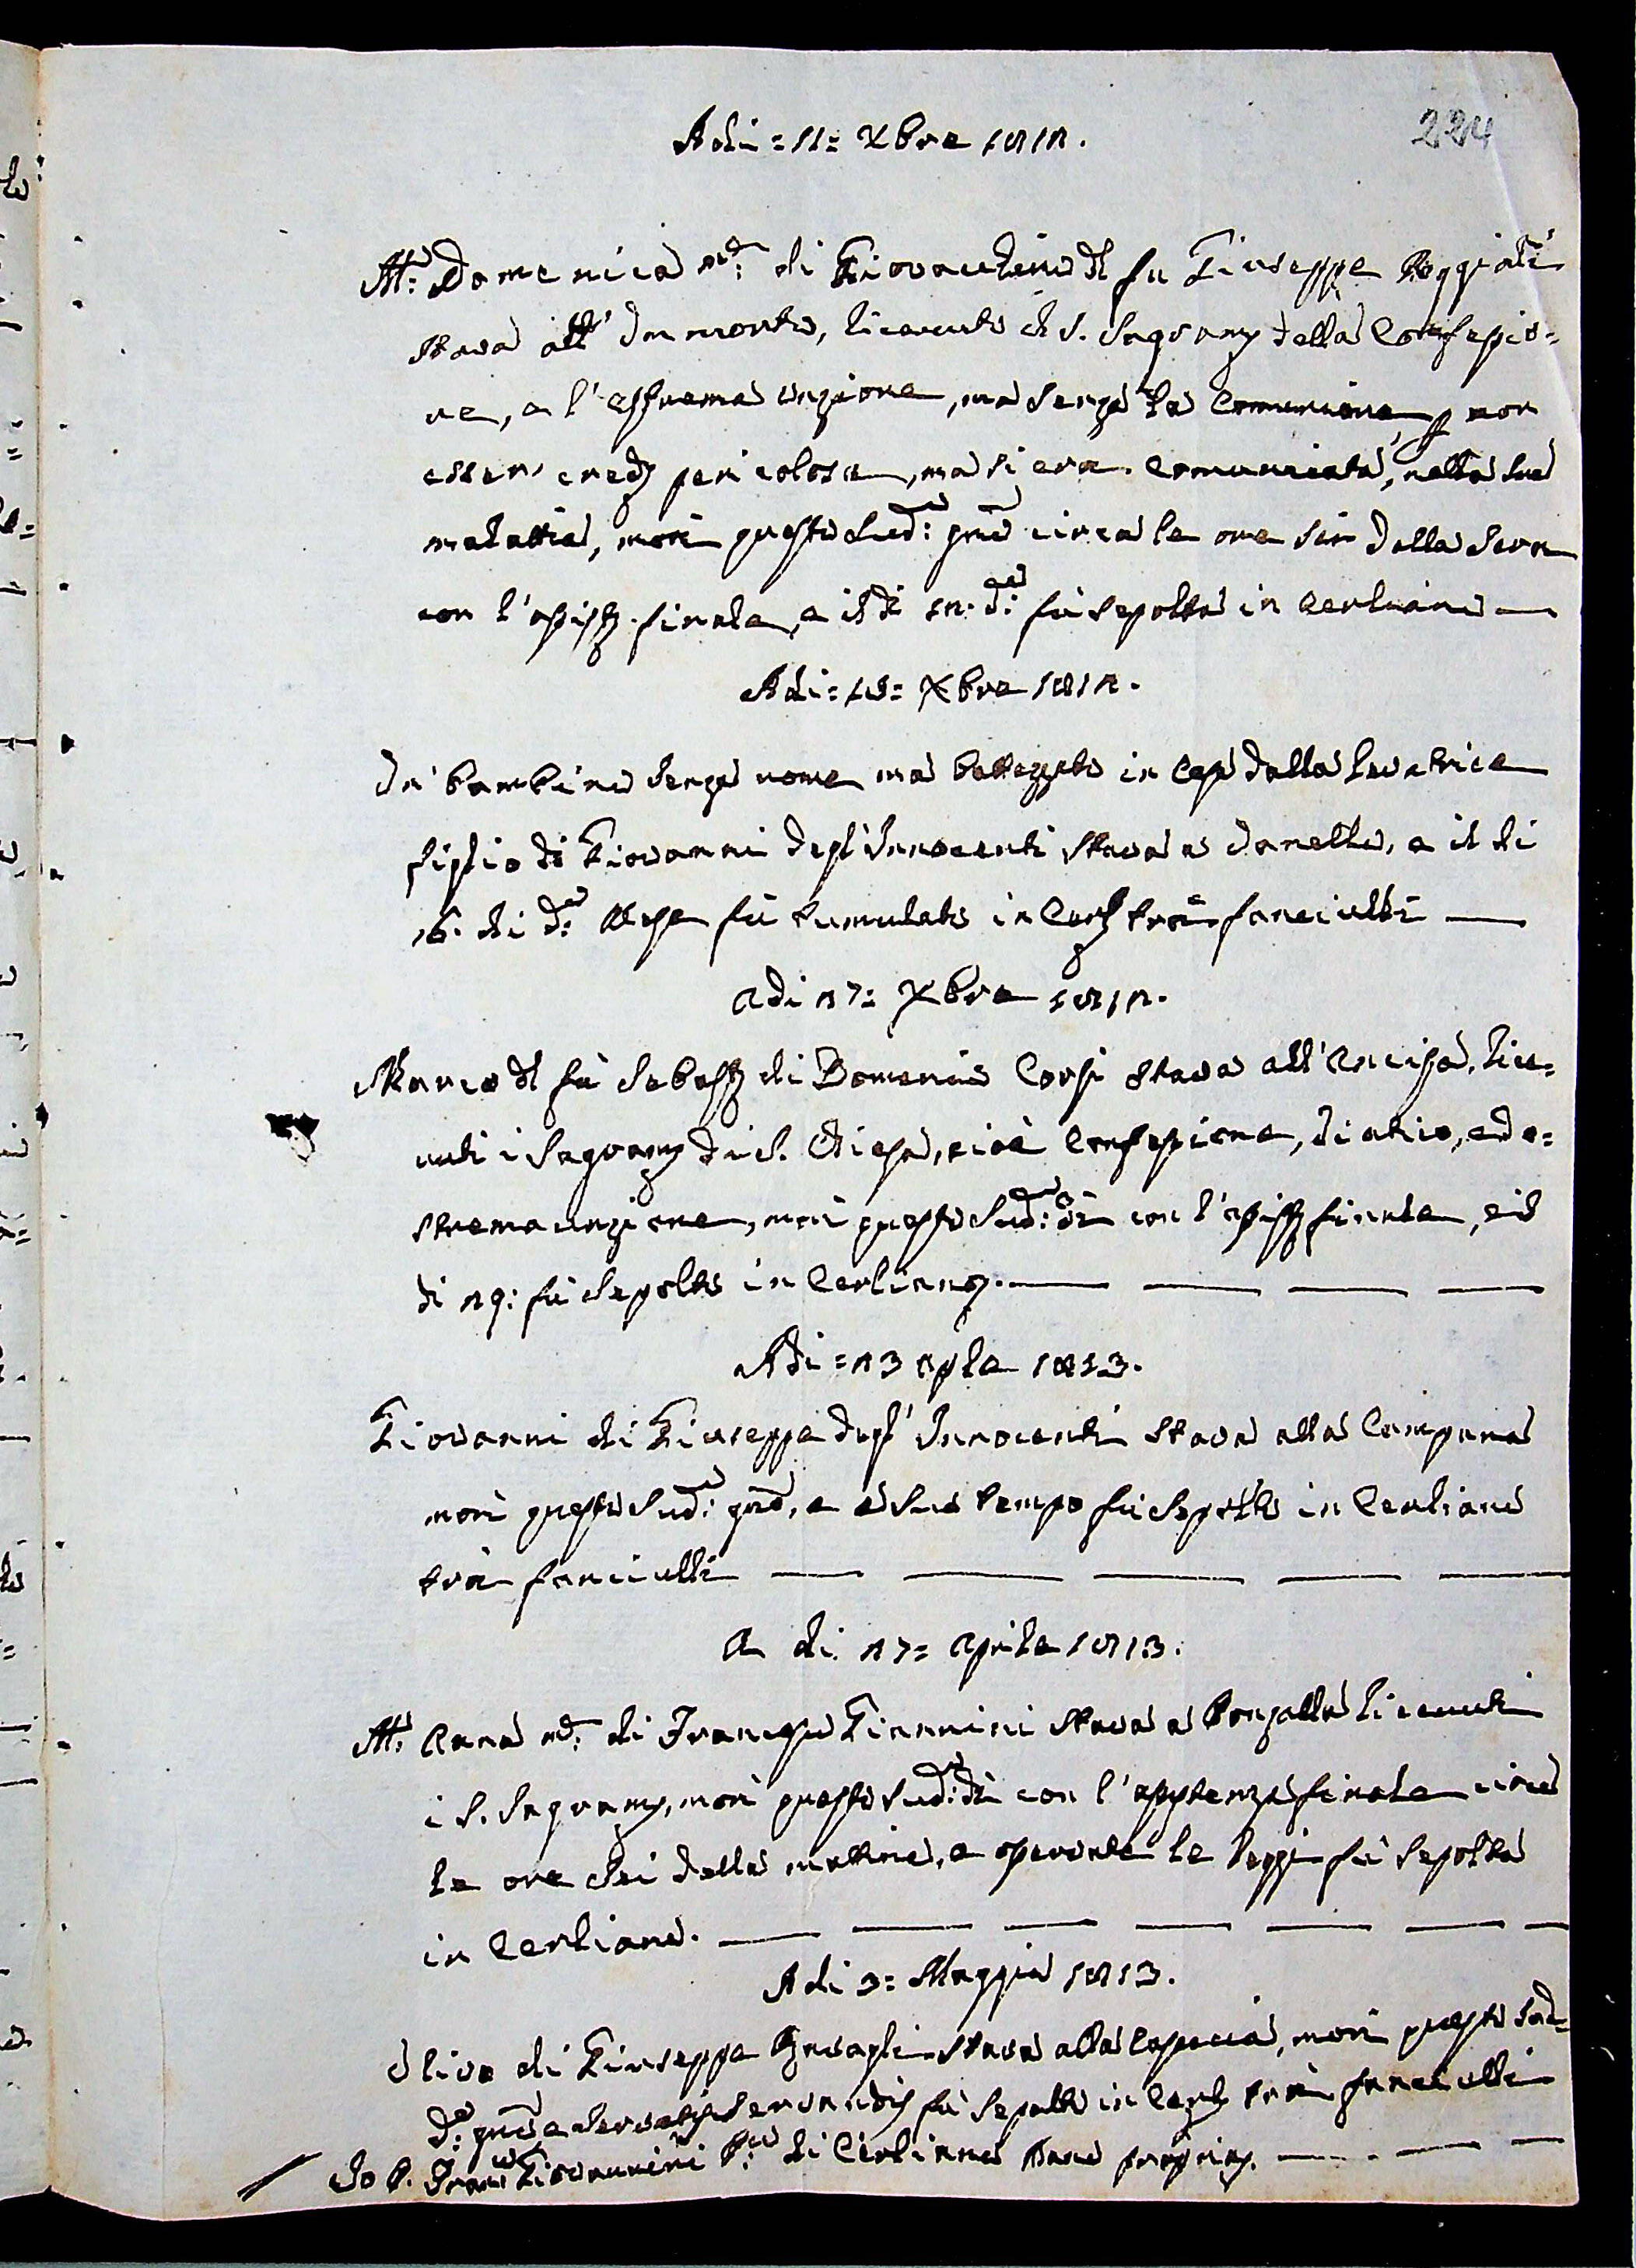 224
Adi = 11 = Xbre 1812.
M:ª Domenica m:ª di Giovacchino del fu Giuseppe Poggiali
stava all' Inmorto, ricevuti i S. Sagram della Confessio=
ne, e l'estrema unzione, ma senza la Comunione p non
esser pericolosa, ma si era Comunicata, nella sua
malattia, morì questo sud:º gno circa le ore sei della sera
con l'assist. finale, e il dì 12. d:º fù sepolta in Cerliano
Adi = 15 = Xbre 1812.
Un bambino senza nome ma battezzato in Casa dalla levatrice
figlio di Giovanni degl'Innocenti stava a, e il di
16. di d:º Mese fù tumulato in Cerl tra fanciulli
Adi 27: Xbre 1812.
Marco del fù Sebast di Domenico Corsi stava all'Ancisa, rice=
vuti i Sagram di S. Chiesa, cioè Confessione, viatico, ed e=
strema unzione, morì questo sud:º dì con l'assist finale, e il
dì 29: fù sepolto in Cerliano.
Adi = 23 Aple 1813.
Giovanni di Giuseppe degl' Innocenti stava alla Campana
morì questo sud:º gno, e a suo tempo fù sepolto in Cerliano
tra fanciulli
A di 27 = Aprile 1813.
M:ª Anna m:ª di Franco Giannini stava a ricevuti
i S. Sagram, morì questo sud:º dì con l'assistenza finale circa
le ore sei della mattina, e operante le leggi fù sepolta
in Cerliano.
Adi 3 = Maggio 1813.
Oliva di Giuseppe stava alla, morì questo sud=
d:º gno e servatis servandis fù sepolto in Cerl tra fanciulli
Io P. Franco Giovannini P:º di Cerliano mano propria.